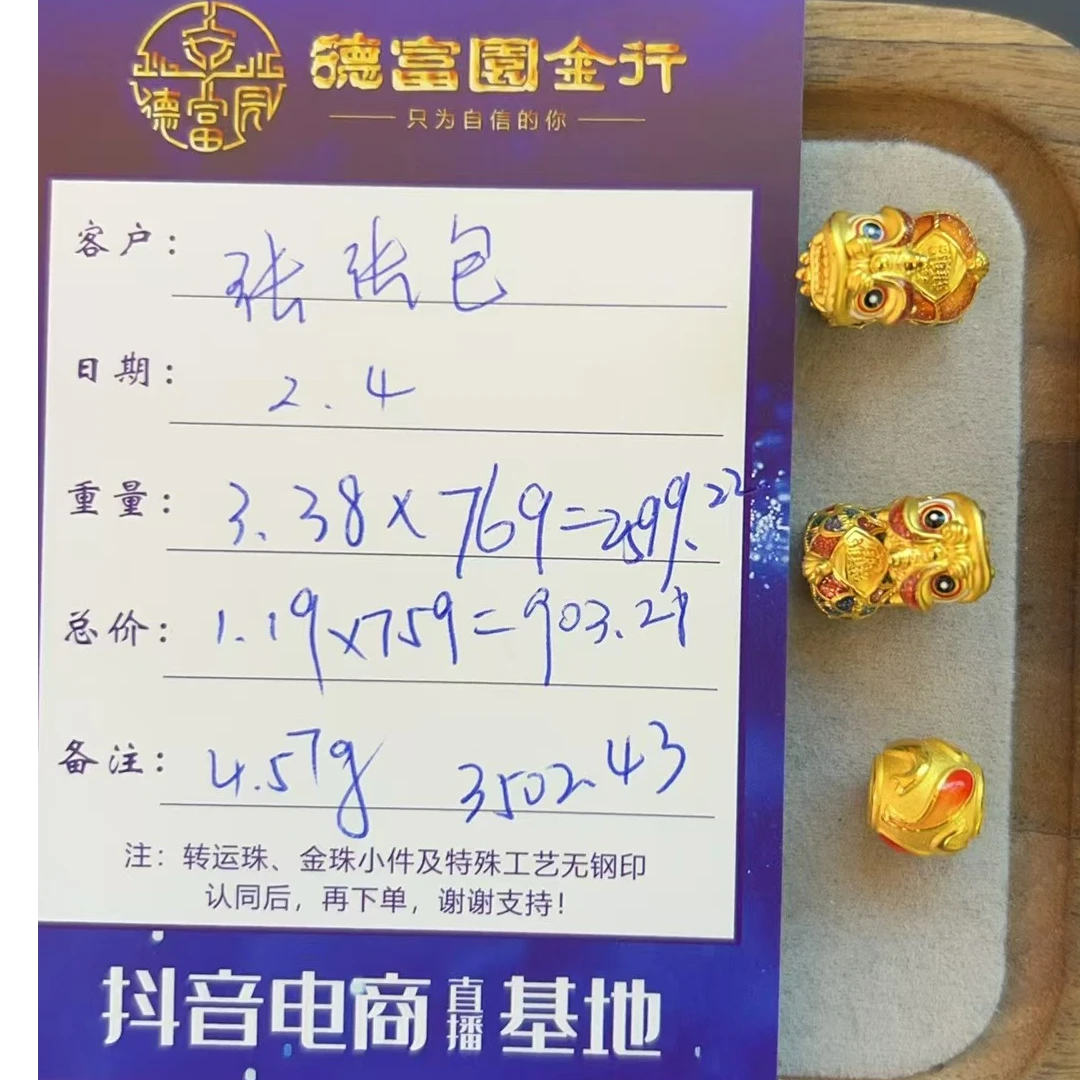 德富园
德富園金行
只为自信的你
客户： 张张包
日期： 2.4
重量： 3.38×769=2599.22
总价： 1.19×759=903.21
备注： 4.57g 3502.43
注：转运珠、金珠小件及特殊工艺无钢印
认同后，再下单，谢谢支持！
抖音电商直播基地